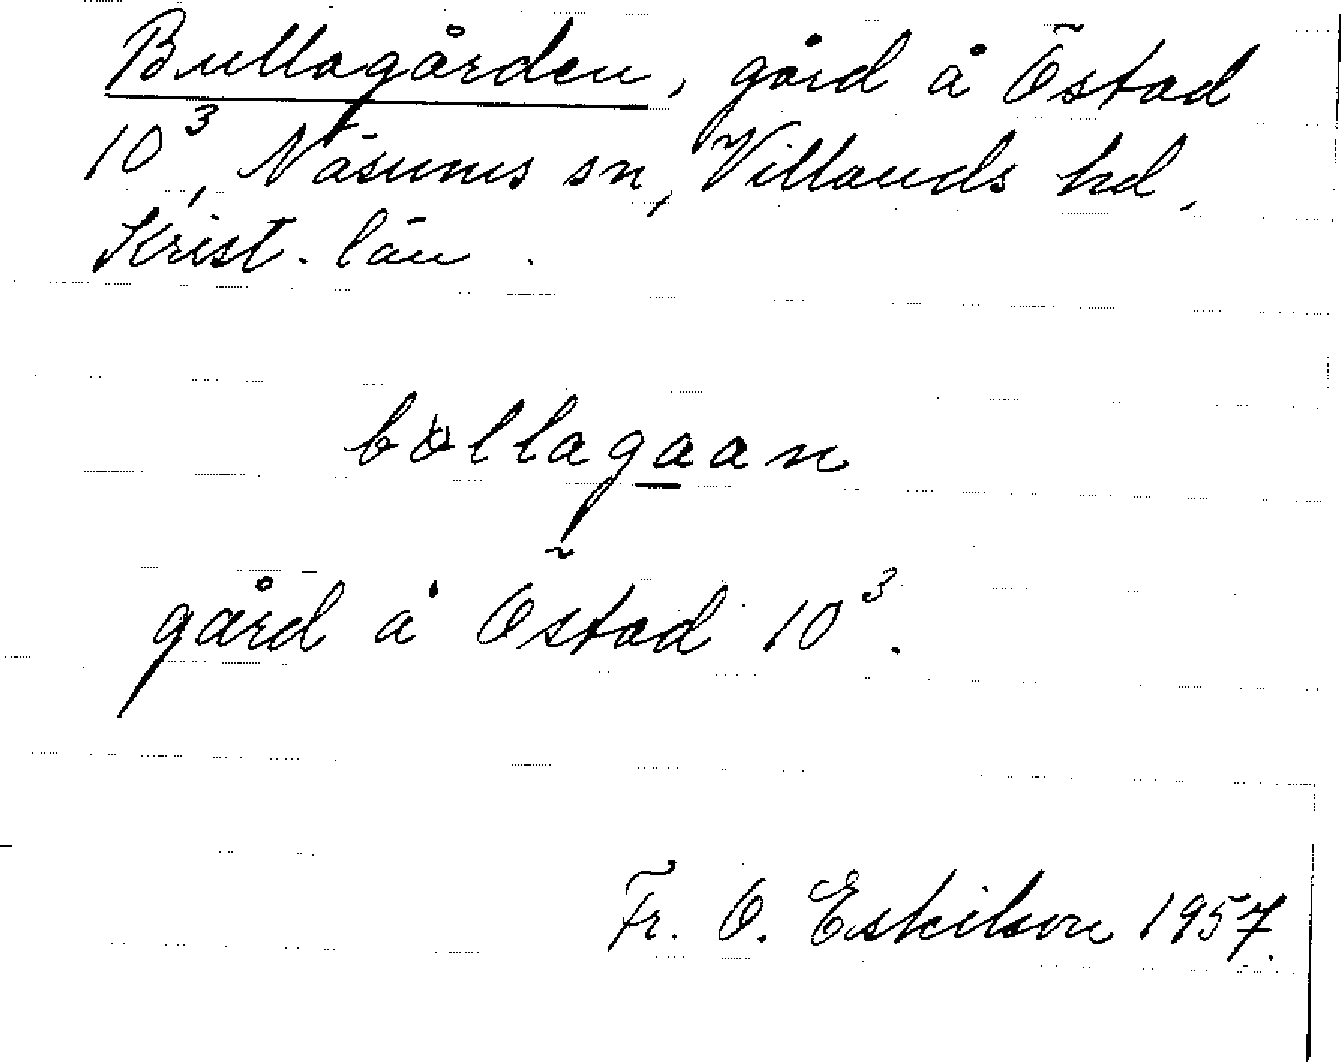 Bullagården, gård å Östad
10³, Näsums sn, Villands hd,
Krist. län.
bollagaan
gård å Östad 10³.
Fr. O. Eskilson 1957.